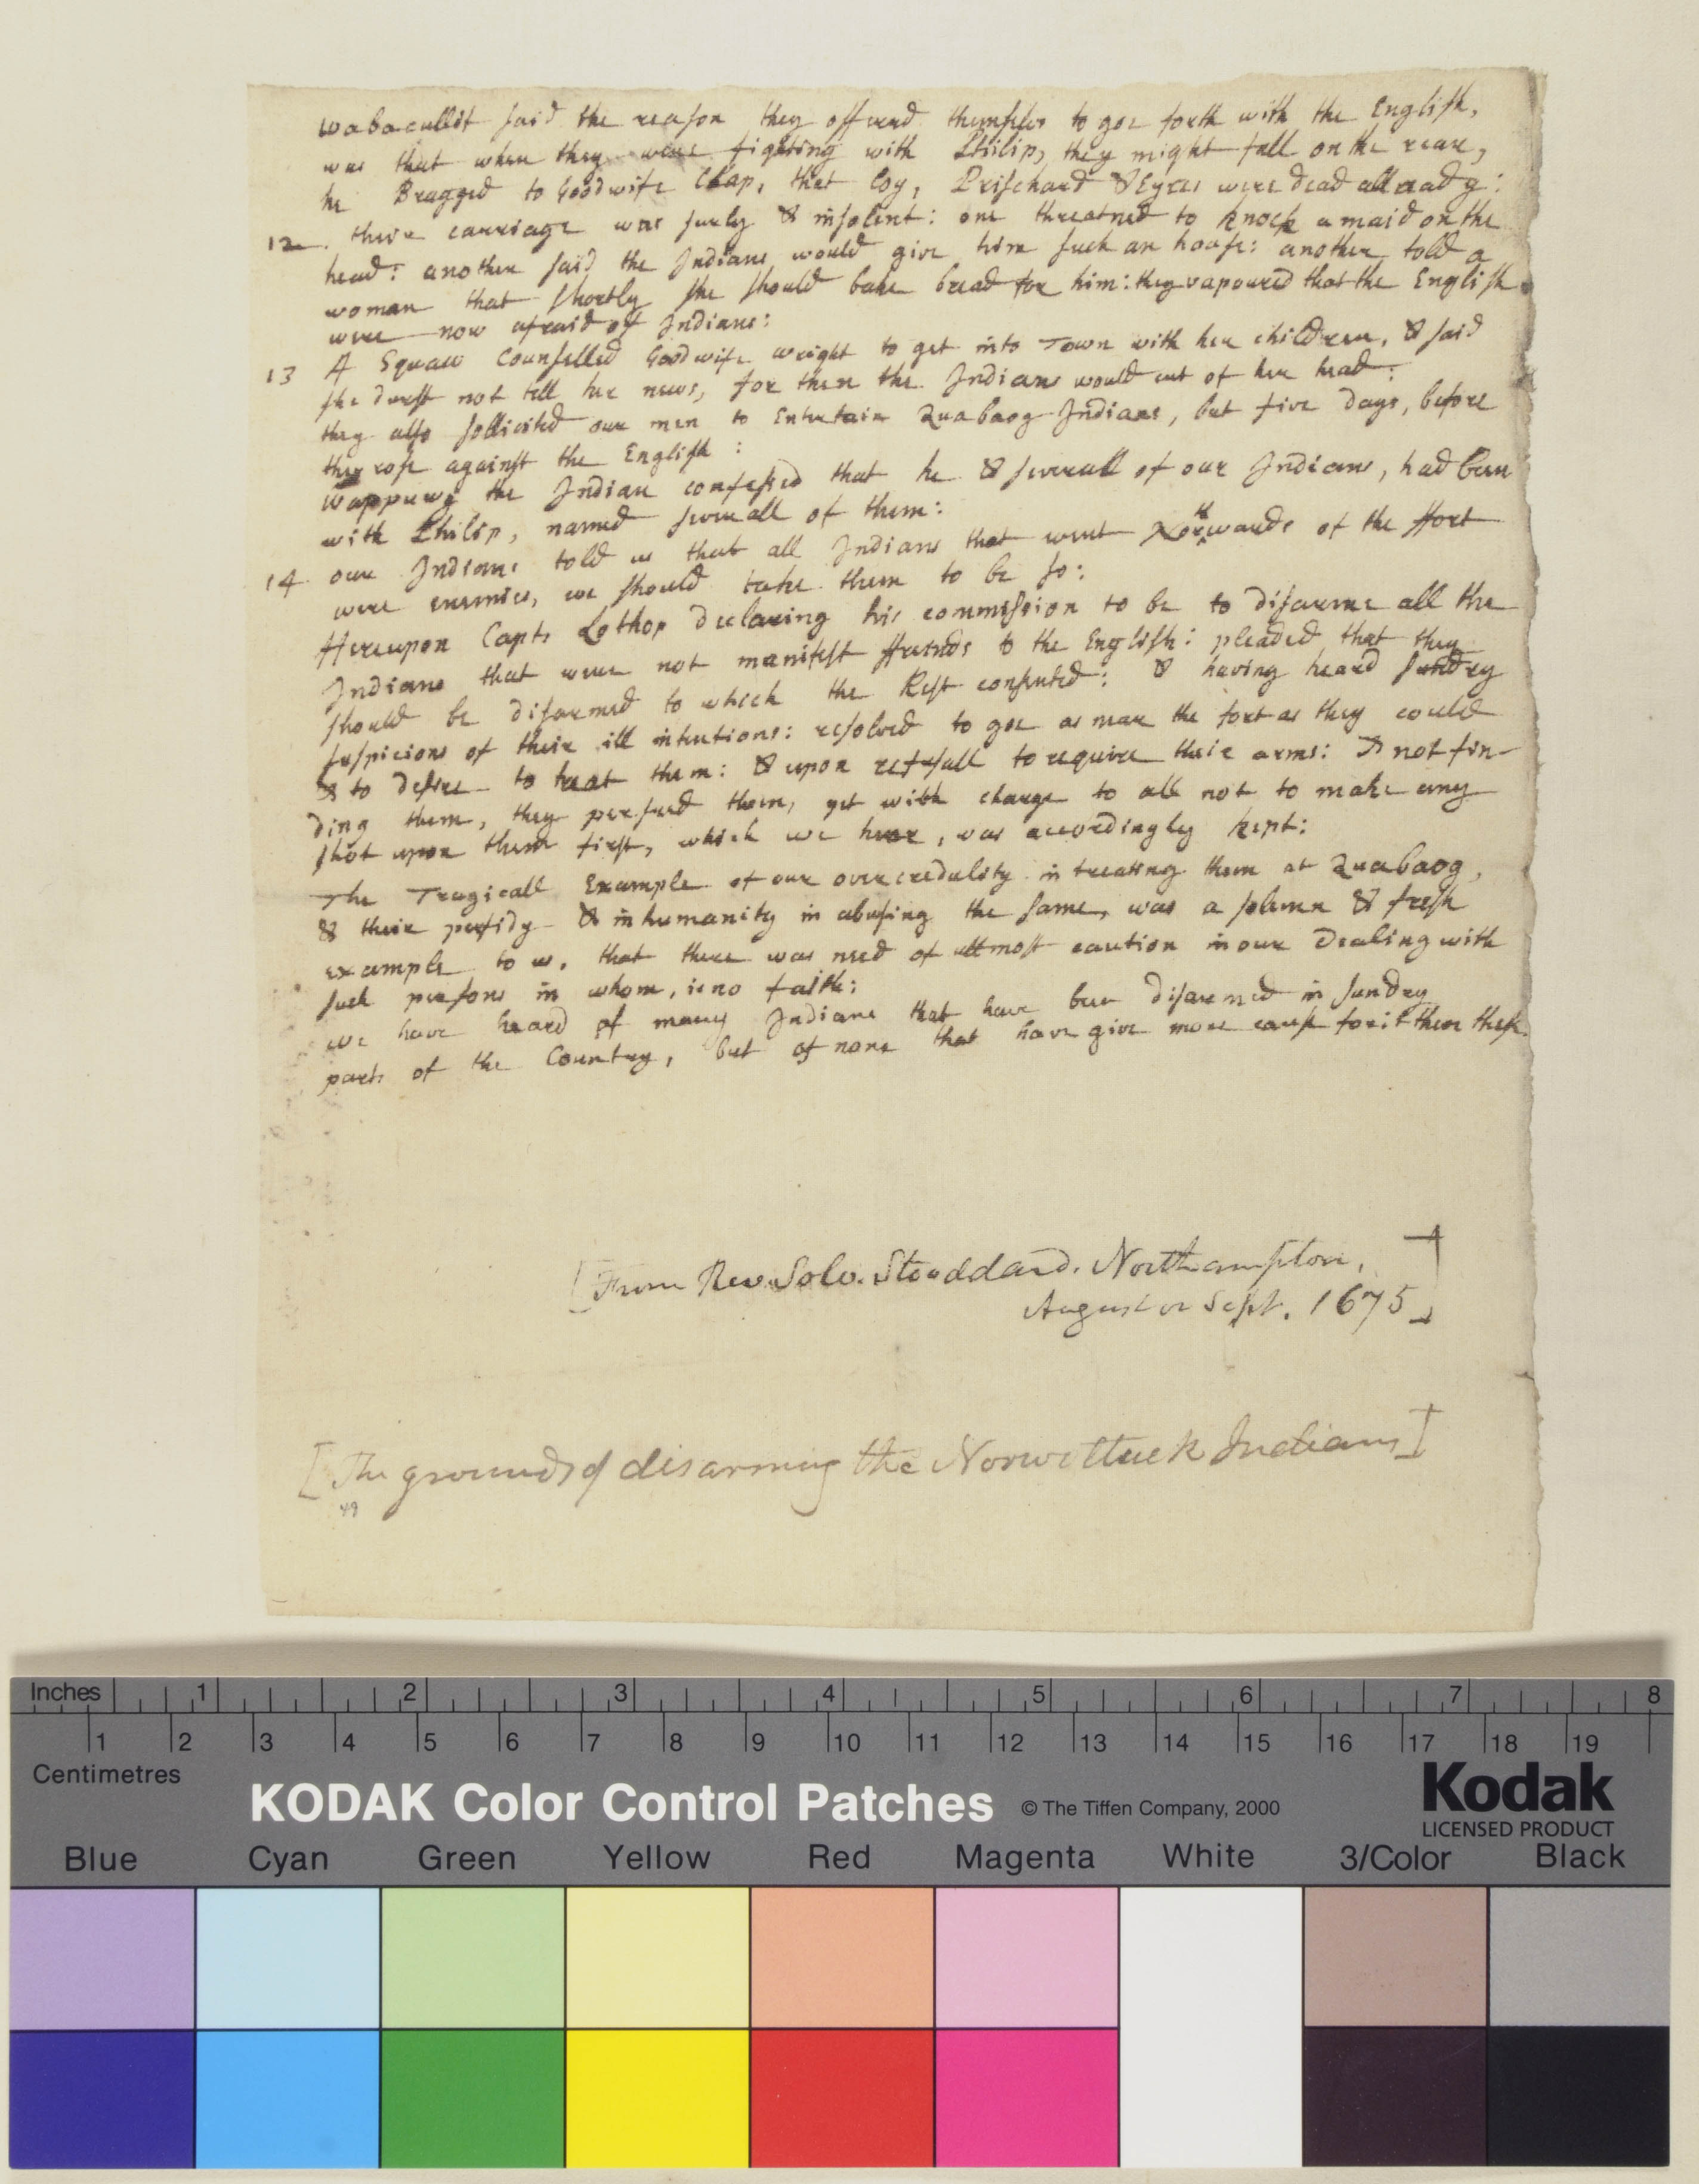 Wabacullit said the reason they offered themselves to goe forth with the English,
was that when they were fighting with Philip, they might fall on the rear,
he Bragged to Goodwife Clap, that Coy, Prischard & Eyres were dead allready:
12. their carriage was surly & insolent: one threatned to knock a maid on the
head: another said the Indians would give him such an house: another told a
woman that shortly she should bake bread for him: they vapoured that the English
were now afraid of Indians:
13 A Squaw Counselled Goodwife wright to get into Town with her children, & said
she durst not tell her news, for then the Indians would cut of her head:
they also sollicited our men to Entertain Quabaog Indians, but five days, before
they rose against the English:
Wappuwy the Indian confessed that he & severall of our Indians, had been
with Philip, named severall of them:
14 our Indians told us that all Indians that went Northwards of the ffort
were enemies, we should take them to be so:
Hereupon Capt. Lothop declaring his commission to be to disarme all the
Indians that were not manifest ffreinds to the English: pleaded that they
should be disarmed to which the Rest consented: & having heard sundry
suspicions of their ill intentions: resolved to goe as near the fort as they could
& to desire to treat them: & upon refusall to require their arms: & not fin-
ding them, they persued them, yet with charge to all not to make any
shot upon them first, which we hear, was accordingly kept:
The Tragicall Example of our overcredulity in treating them at Quabaog,
& their perfidy & inhumanity in abusing the same, was a solemn & fresh
example to us, that there was need of utmost caution in our Dealing with
such persons in whom, is no faith:
we have heard of many Indians that have been disarmed in sundry
parts of the Country, but of none that have give more cause for it then these.
[From Rev. Solo. Stoddard. Northampton,
August or Sept. 1675]
[The grounds of disarming the Norwottuck Indians]
49
Inches 1 2 3 4 5 6 7 8
1 2 3 4 5 6 7 8 9 10 11 12 13 14 15 16 17 18 19
Centimetres
KODAK Color Control Patches © The Tiffen Company, 2000
Kodak
LICENSED PRODUCT
Blue Cyan Green Yellow Red Magenta White 3/Color Black